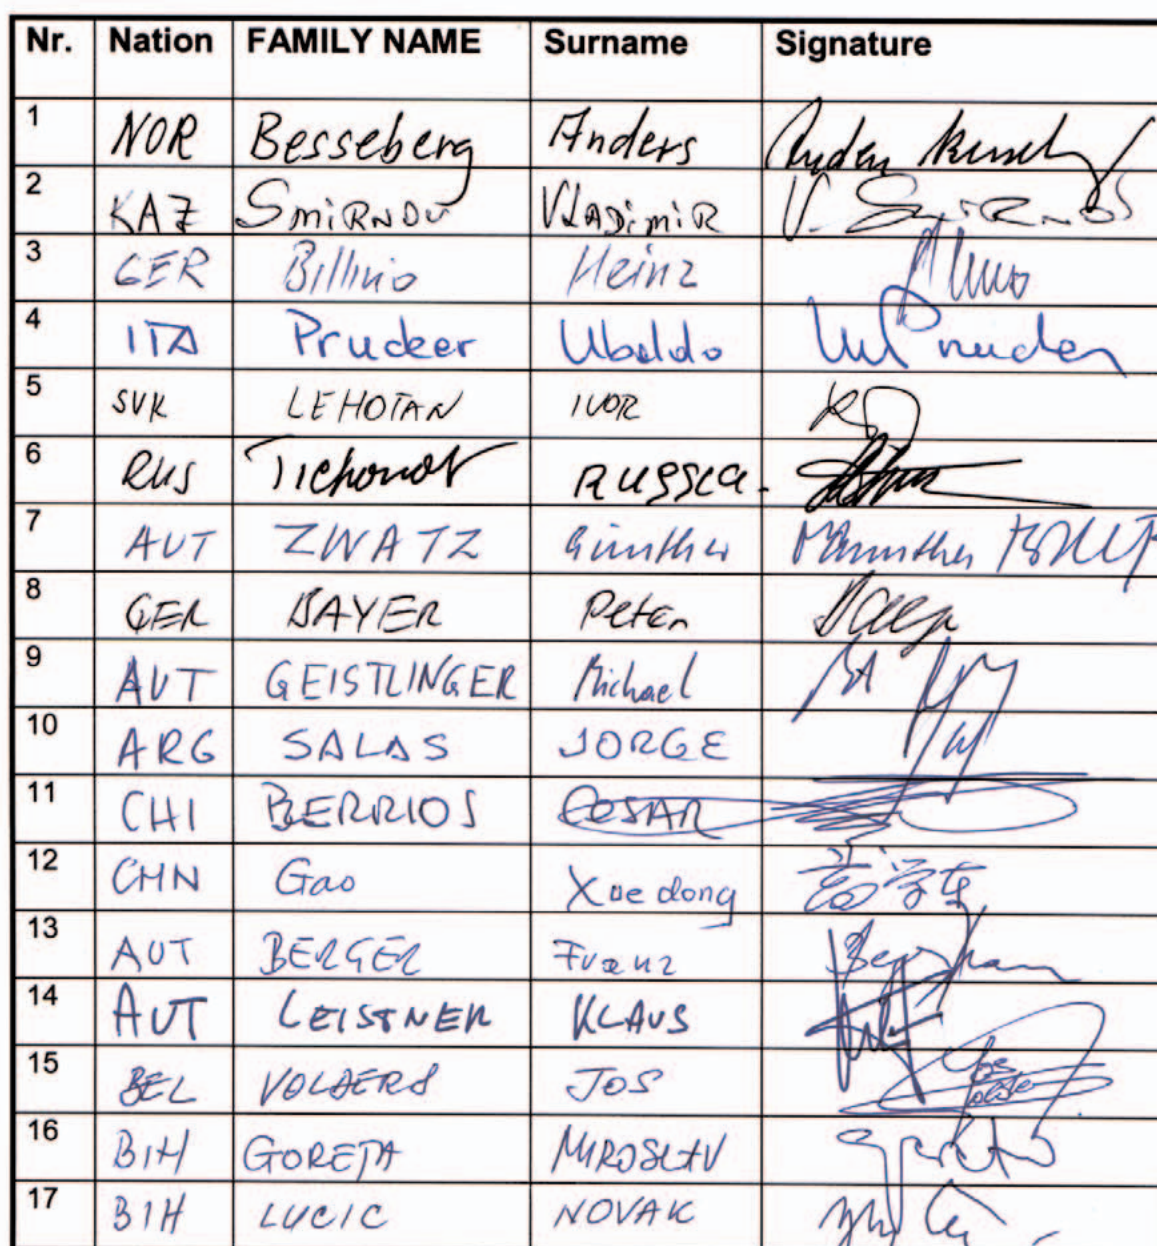 Nr. Nation FAMILY NAME Surname Signature
1 NOR Besseberg Anders
2 KAZ SmiRNOV VLADimiR V. SmiRNOV
3 GER Heinz
4 ITA Prucker Ubaldo
5 SVK LEHOTAN IVOR
6 RUS Tichonov RUSSCA.
7 AUT ZWATZ Günther
8 GER BAYER Peter
9 AUT GEISTLINGER Michael
10 ARG SALAS JORGE
11 CHI BERRIOS CESAR
12 CHN Gao Xuedong 高学东
13 AUT BERGER Franz
14 AUT LEISTNER KLAUS
15 BEL VOLDERS JOS
16 BIH GORETA MIROSLAV
17 BIH LUCIC NOVAK